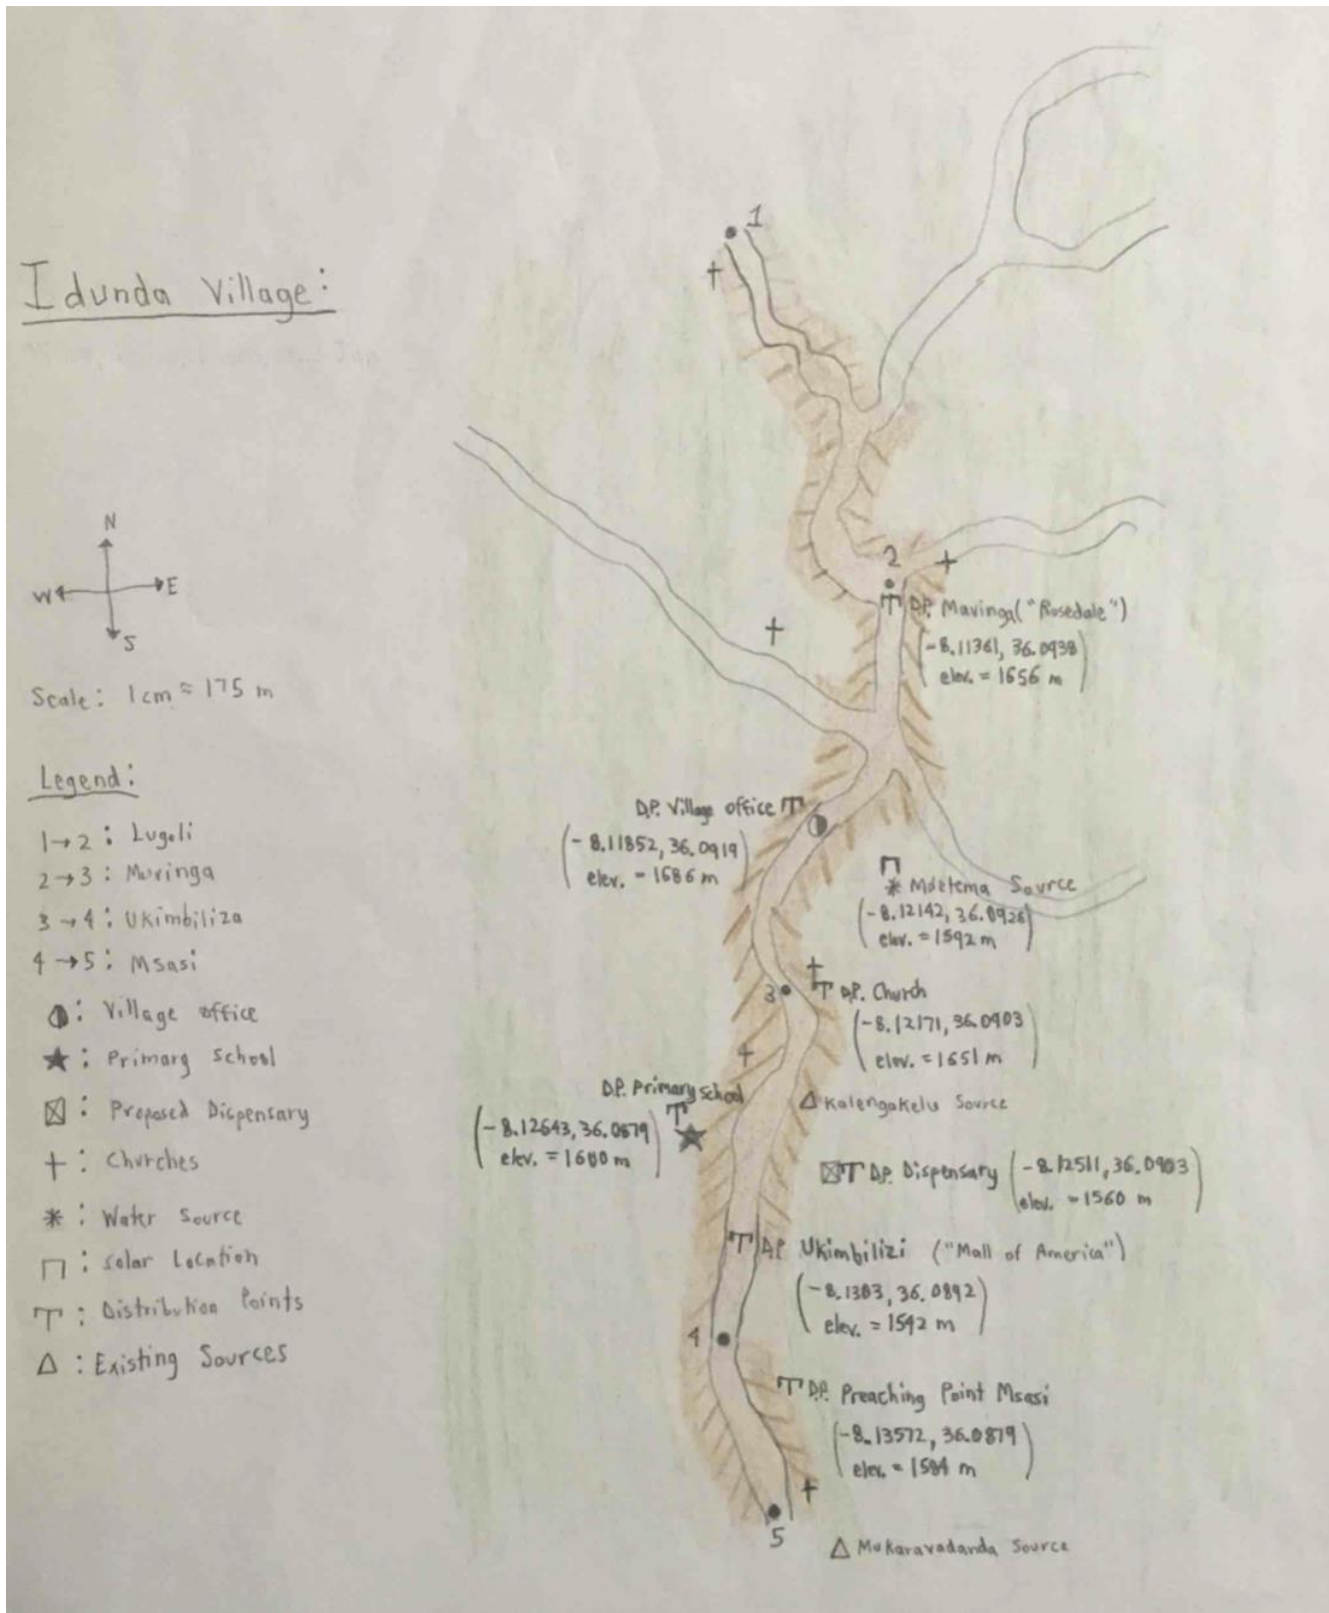 Idunda Village:
N
W E
S
Scale: 1cm ≈ 175 m
Legend:
1→2: Lugoli
2→3: Muringa
3→4: Ukimbiliza
4→5: Msasi
: Village office
: Primary school
: Proposed Dispensary
: Churches
: Water Source
: Solar Location
: Distribution Points
: Existing Sources
1
2
D.P. Mavinga ("Rosedale")
(-8.11361, 36.0938)
elev. = 1656 m
D.P. Village office
(-8.11852, 36.0919)
elev. = 1686 m
Source
(-8.12142, 36.0926)
elev. = 1592 m
3
D.P. Church
(-8.12171, 36.0903)
elev. = 1651 m
D.P. Primary school
(-8.12643, 36.0879)
elev. = 1600 m
Kalengakelu Source
D.P. Dispensary (-8.12511, 36.0903)
elev. = 1560 m
D.P. Ukimbilizi ("Mall of America")
(-8.1303, 36.0892)
elev. = 1542 m
4
D.P. Preaching Point Msasi
(-8.13572, 36.0879)
elev. = 1584 m
5
Mukaravadanda Source